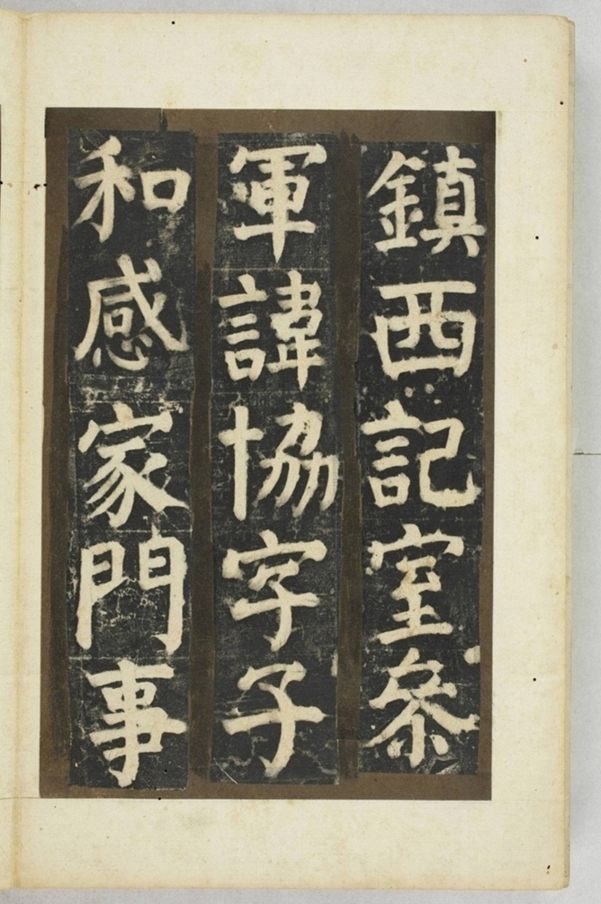 鎮西記室叅
軍諱協字子
和感家門事